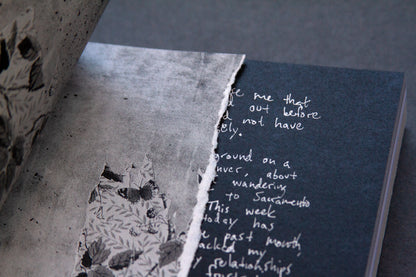 me that
out before
not have
ely.
ground on a
nver, about
wandering
to Sacramento
This week
today has
past month,
acked my
relationships